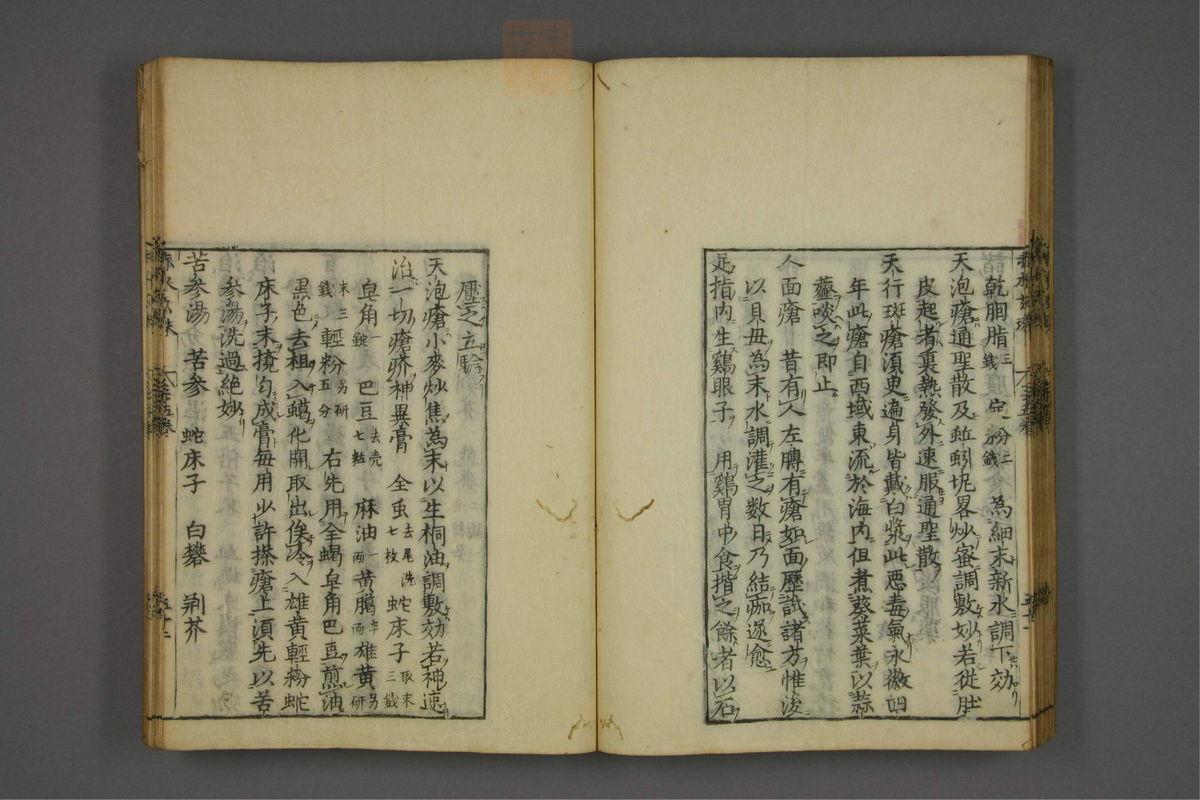 乾胭脂三錢 定粉二錢 為細末新水調下効
天泡瘡通聖散及蚯蚓坭畧炒蜜調敷妙若從肚
皮起者裏熱發外速服通聖散
天行斑瘡須臾遍身皆戴白漿此惡毒氣永徽四
年此瘡自西域東流於海内但煮葵菜葉以蒜
虀啖之即止
人面瘡 昔有人左膊有瘡如面歷試諸方惟
以貝母為末水調灌之数日乃結痂遂愈
足指内生鷄眼子 用鷄胃中食揩之餘者以石
壓之立驗
天泡瘡小麥炒焦為末以生桐油調敷効若神速
治一切瘡疥神異膏 全虫去尾洗七枚 蛇床子取末三錢
皂角一錠 巴豆去壳七粒 麻油一兩 黄臈半兩 雄黄另研
末三錢 輕粉另研五分 右先用全蝎皂角巴豆煎油
黒色去柤入蠟化開取出俟冷入雄黄輕粉蛇
床子末攪匀成膏毎用少許搽瘡上須先以苦
参湯洗過絶妙
苦参湯 苦参 蛇床子 白礬 荆芥